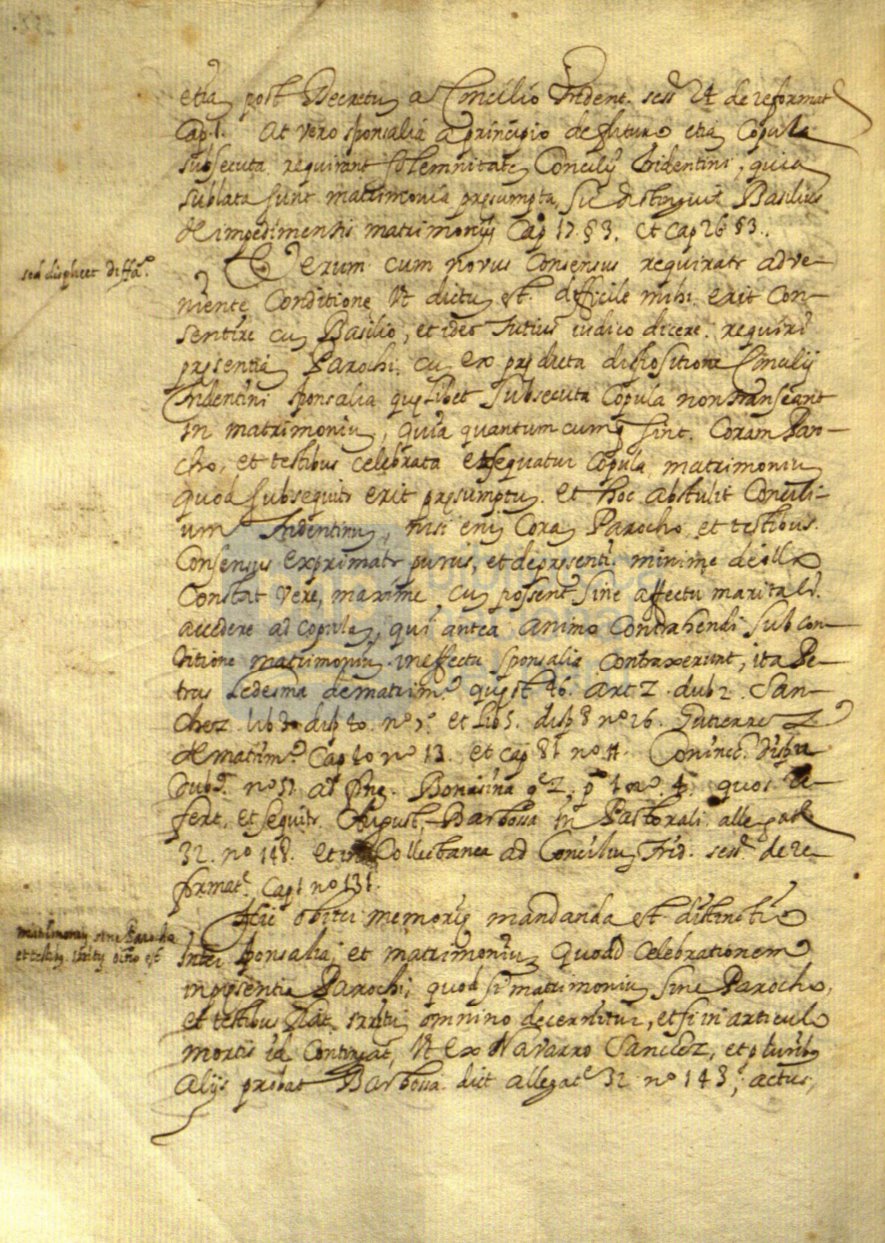 etiã post Decretũ a Concilio Trident. sess. 24 de reformat
Cap. 1. At vero sponsalia a principio de futuro etiã Copula
subsecuta requirant solemnitatẽ Concilij Tridentini, quia
sublata sunt matrimonia presumpta, sic distinguit Basilius
de impedimentis matrimonij Cap 17. §3. et Cap 26 §3.
sed displicet diff.ª
Verum cum novus Consensus requiratr adve-
niente Conditione Vt dictũ est. difficile mihi erit Con-
sentire cũ Basilio, et ideo tutius iudico dicere. requiri
presentiã Parochi. cũ ex predicta dispositione Concilij
Tridentini sponsalia quelibet subsecuta Copula non transeant
in matrimoniũ, quia quantumcumq sint. Coram Paro-
cho, et testibus celebrata et sequatur copula matrimoniũ
quod subsequitr erit presumptũ. et hoc abstulit Concili-
um Tridentinũ, nisi enĩ Corã Parocho et testibus.
Consensus exprimatr purus, et de presenti. minime de illo
Constat vere, maxime cũ possent sine affectu maritali.
accedere ad copulã, qui antea animo Contrahendi sub con-
ditione matrimoniũ in effectu sponsalia contraxerunt, ita Pe-
trus Ledesma de matrim.º quest 46. art 2. dub 2. San-
chez lib disp nº et Lib 5. disp 8 nº 26. Gutierrez
de matrim.º Cap nº 13. et cap 81 nº 11. Coninc. disp
Dub. nº 51 at fine. Bonasina q.e 2. quos Re-
fert, et sequitr. August. Barbossa in Pastorali allegat.e
32. nº 148. et in Collectanea ad Conciliũ Trid. sess. de re-
format.e Cap 1 nº 131.
Hic obiter memorie mandanda est distinctio
matrimoniũ sine Parocho
et testibus irritũ oĩno est
Inter sponsalia, et matrimoniũ Quoad Celebrationem
in presentia Parochi, quod si matrimoniũ sine Parocho,
et testibus fiat irritũ omnino decernitur, et si in articulo
mortis id Contingat, Vt ex Navarro Sanchez, et pluribus
alijs probat Barbossa. dict allegat.e 32 nº 148; actus,